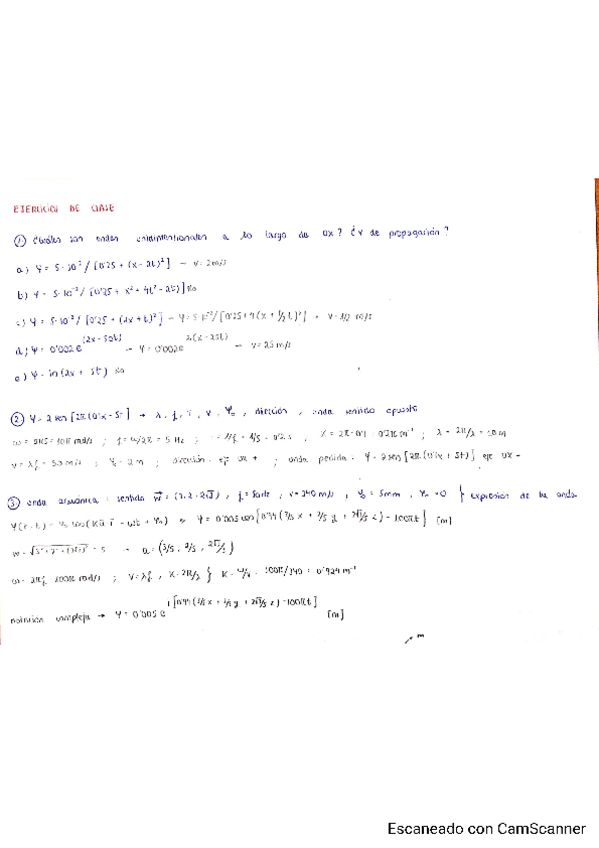 EJERCICIOS DE CLASE
① ¿Cuáles son ondas unidimensionales a lo largo de OX? ¿V de propagación?
a) Ψ = 5·10⁻² / [0'25 + (x - 2t)²] → v = 2 m/s
b) Ψ = 5·10⁻² / [0'25 + x² + 4t² - 2t)] No
c) Ψ = 5·10⁻² / [0'25 + (2x + t)²] → Ψ = 5·10⁻² / [0'25 + 4(x + 1/2 t)²] → v = 1/2 m/s
d) Ψ = 0'002 e^(2x - 50t) → Ψ = 0'002 e^2(x - 25t) → v = 25 m/s
e) Ψ = ln (2x + 5t) No
② Ψ = 2 sen [2π (0'1x - 5t] → λ, f, T, v, Ψ₀, dirección, onda sentido opuesto
ω = 2π5 = 10π rad/s ; f = ω/2π = 5 Hz ; T = 1/f = 1/5 = 0'2 s ; K = 2π·0'1 = 0'2π m⁻¹ ; λ = 2π/k = 10 m
v = λf = 50 m/s ; Ψ₀ = 2 m ; dirección: eje OX + ; onda pedida: Ψ = 2 sen [2π (0'1x + 5t)] eje OX -
③ onda armónica: sentido w = (3, 2, 2√3), f = 50 Hz, v = 340 m/s, Ψ₀ = 5mm, φ₀ = 0 } expresión de la onda
Ψ = 0'005 cos {0'94 (3/5 x + 2/5 y + 2√3/5 z) - 100πt} [m]
= 5 → u = (3/5, 2/5, 2√3/5)
ω = 2πf = 100π rad/s ; v = λf, K = 2π/λ } K = ω/v = 100π/340 = 0'924 m⁻¹
notación compleja → Ψ = 0'005 e^i[0'94 (3/5 x + 2/5 y + 2√3/5 z) - 100πt] [m]
Escaneado con CamScanner